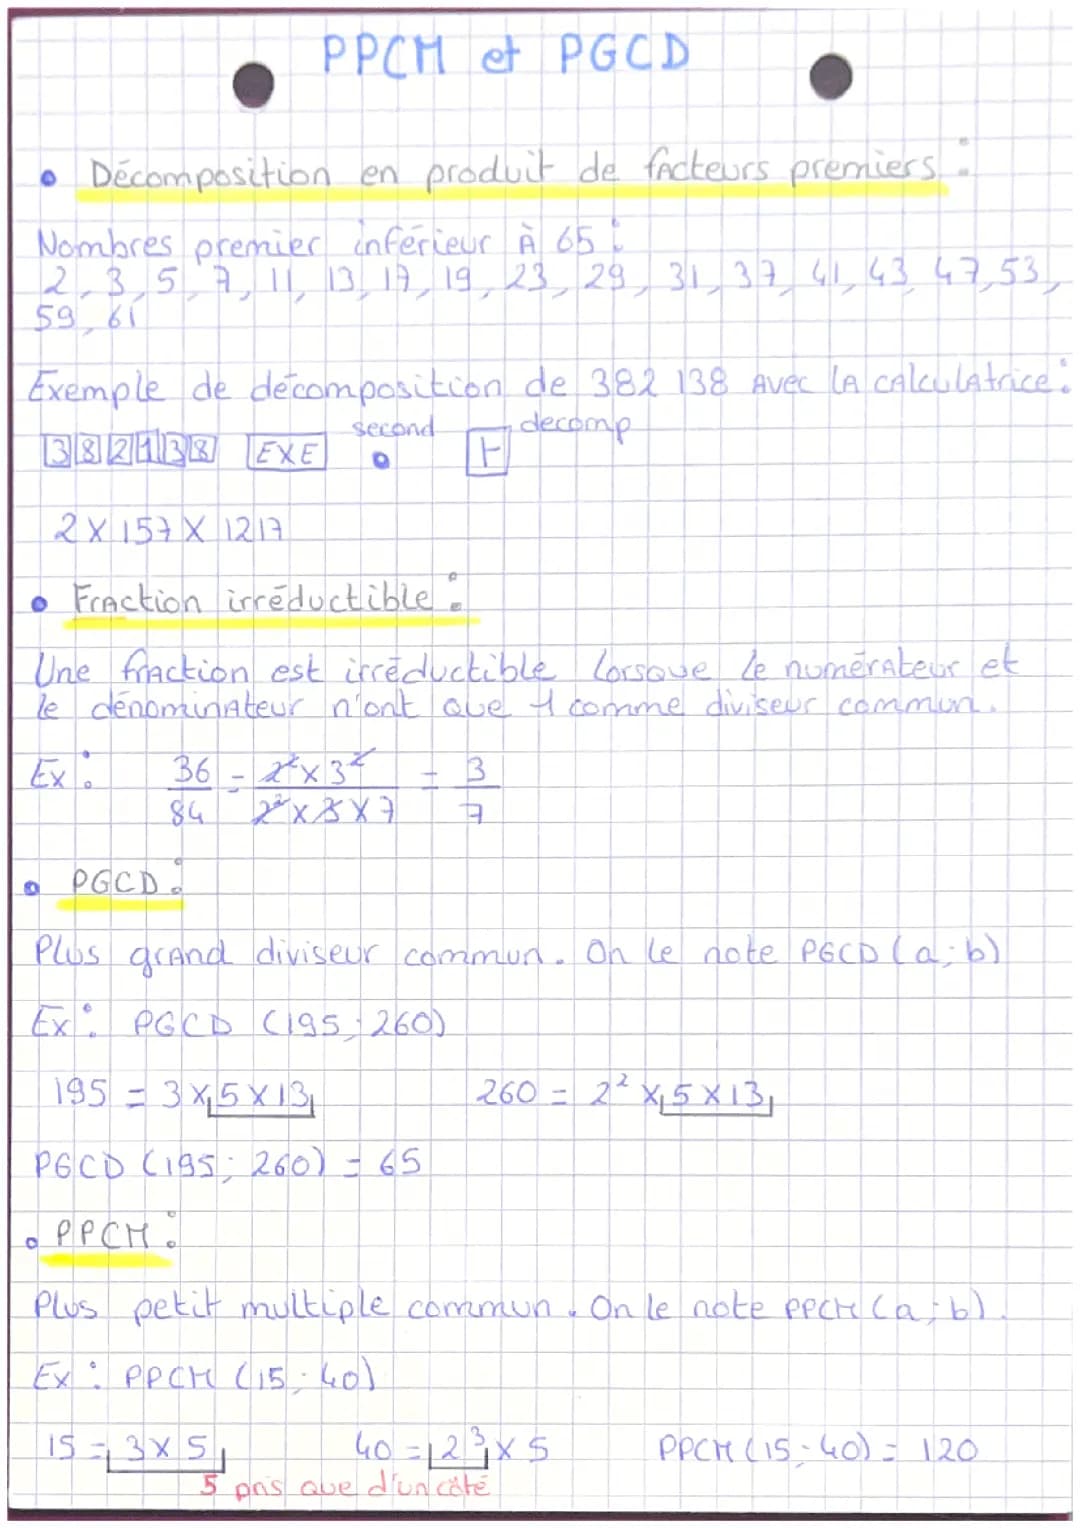 PPCM et PGCD
• Décomposition en produit de facteurs premiers :
Nombres premier inférieur à 65 :
2, 3, 5, 7, 11, 13, 17, 19, 23, 29, 31, 37, 41, 43, 47, 53,
59, 61
Exemple de décomposition de 382 138 avec la calculatrice :
382138 EXE second decomp
2 x 157 x 1217
• Fraction irréductible :
Une fraction est irréductible lorsque le numérateur et
le dénominateur n'ont que 1 comme diviseur commun.
Ex : 36/84 = 2² x 3²/2² x 3 x 7 = 3/7
• PGCD :
Plus grand diviseur commun. On le note PGCD (a ; b)
Ex : PGCD (195 ; 260)
195 = 3 x 5 x 13 260 = 2² x 5 x 13
PGCD (195 ; 260) = 65
• PPCM :
Plus petit multiple commun. On le note PPCM (a ; b).
Ex : PPCM (15 ; 40)
15 = 3 x 5 40 = 2³ x 5 PPCM (15 ; 40) = 120
5 pris que d'un côté